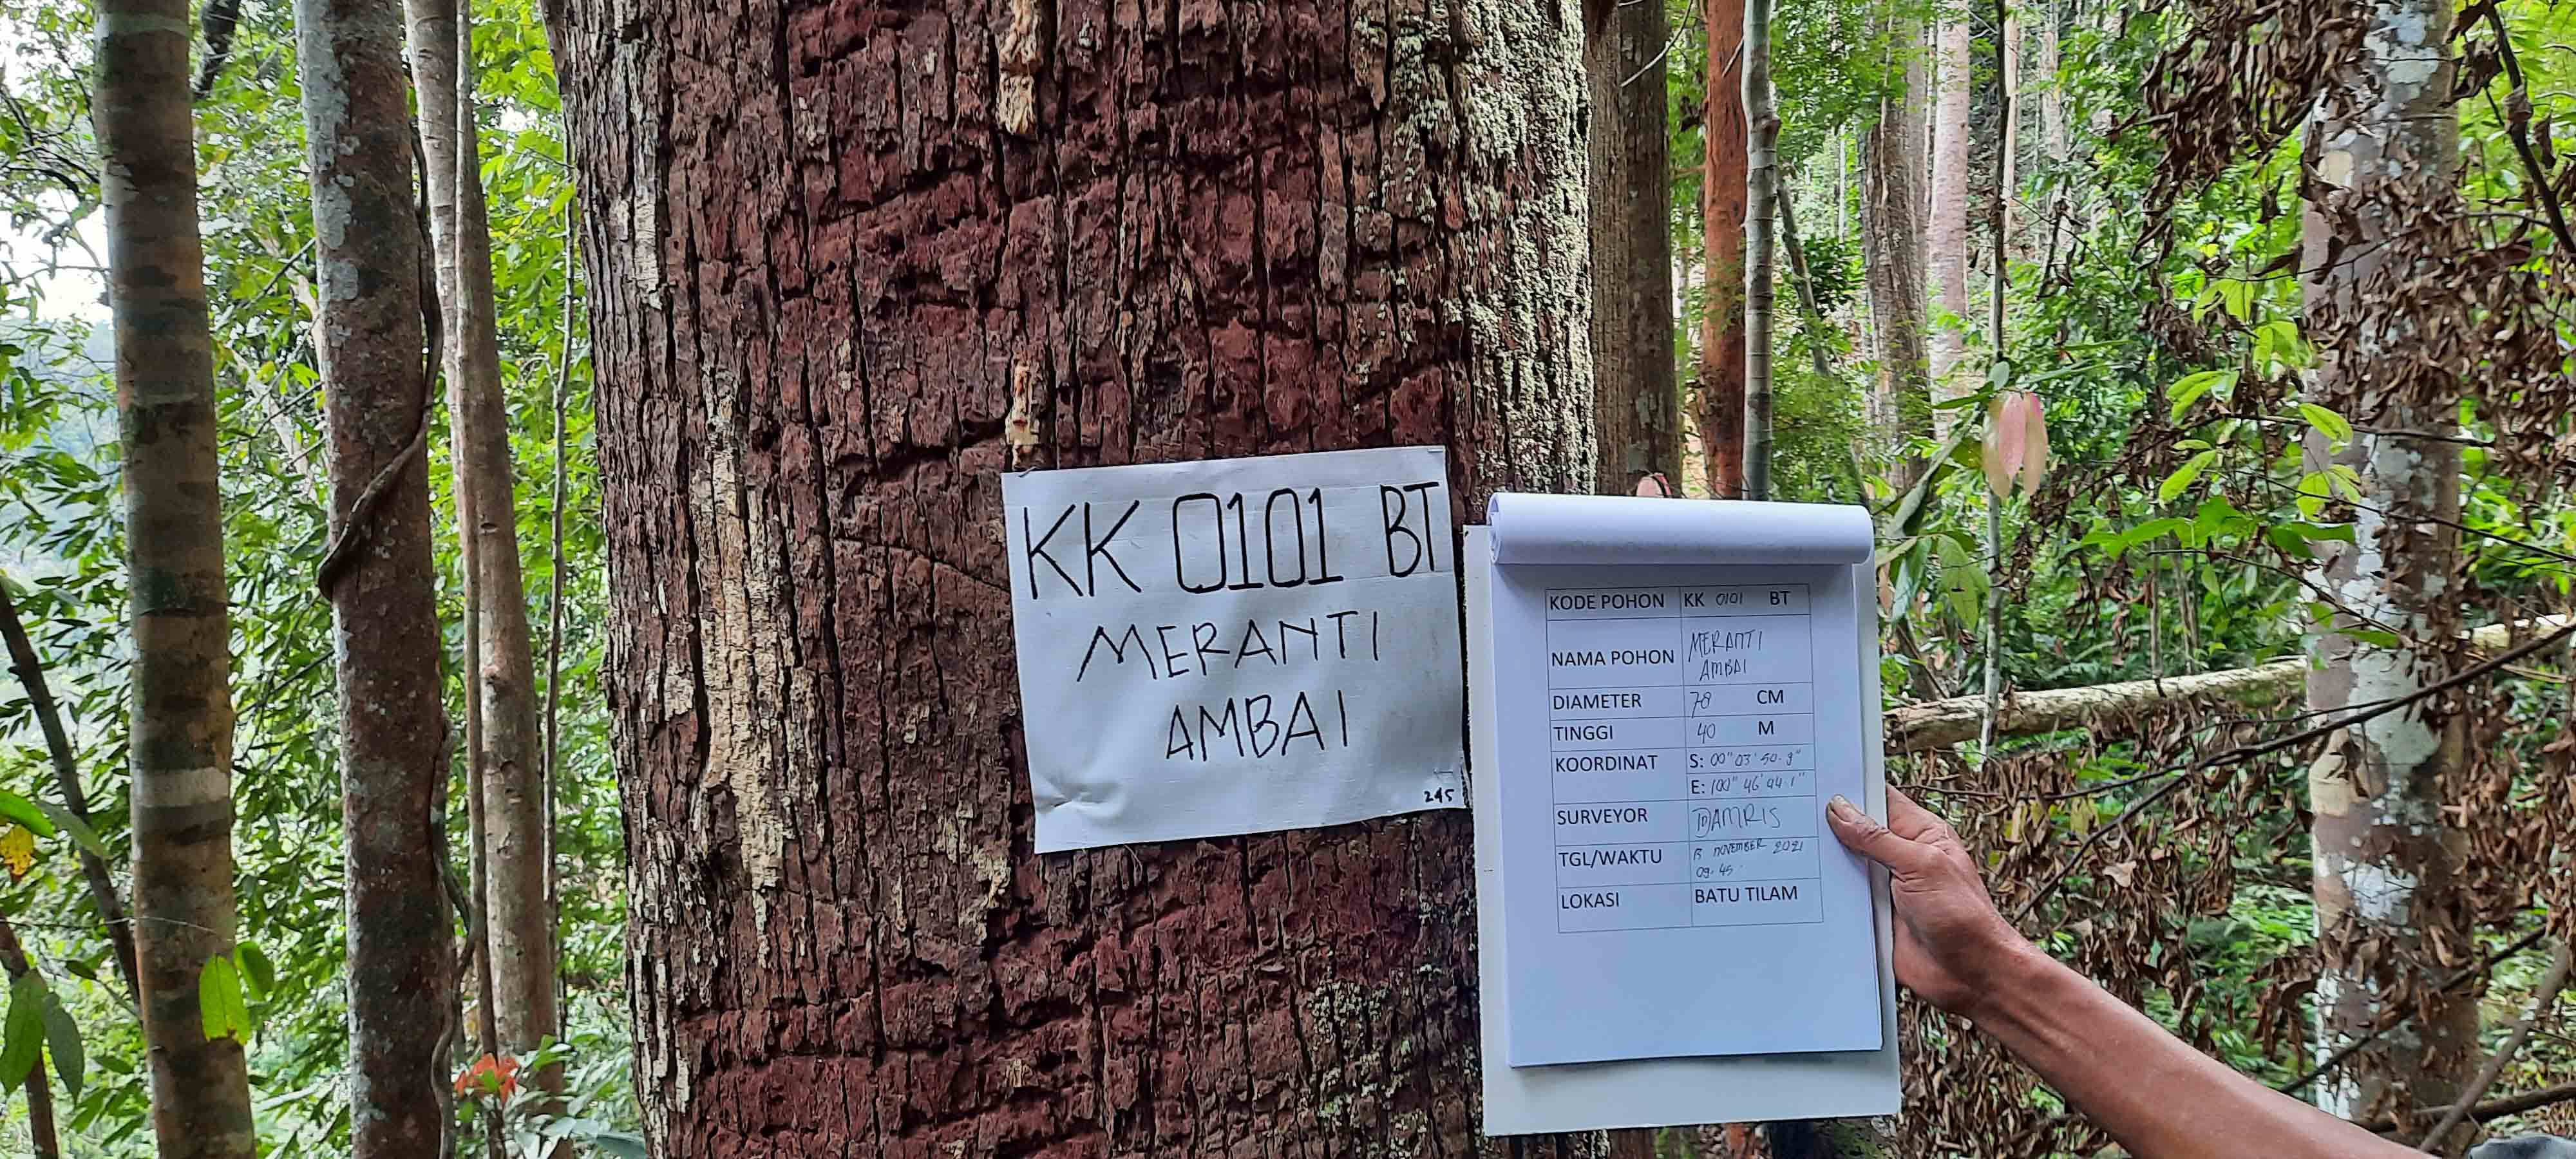 KK 0101 BT
MERANTI
AMBAI
245
KODE POHON KK 0101 BT
NAMA POHON MERANTI
AMBAI
DIAMETER 78 CM
TINGGI 40 M
KOORDINAT S: 00" 03' 50.9"
E: 100" 46' 44.1"
SURVEYOR DAMRIS
TGL/WAKTU NOVEMBER 2021
09.45.
LOKASI BATU TILAM